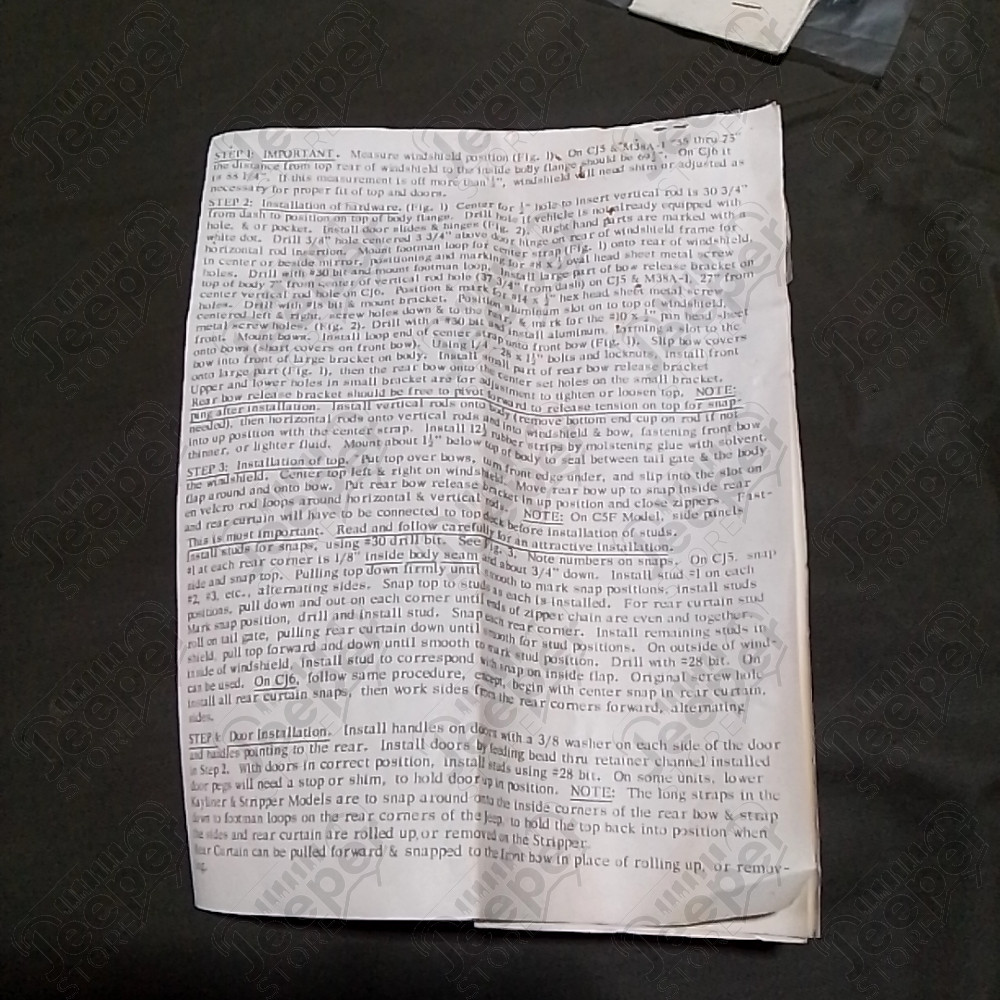 STEP 1: IMPORTANT. Measure windshield position (Fig. 1). On CJ5 & M38A-1 -55 thru 75"
the distance from top rear of windshield to the inside body flange should be On CJ6 it
is If this measurement is off more than ½", windshield will need shim or adjusted as
necessary for proper fit of top and doors.
STEP 2: Installation of hardware. (Fig. 1) Center for ½" hole to insert vertical rod is 30 3/4"
from dash to position on top of body flange. Drill hole if vehicle is not already equipped with
hole, & or pocket. Install door slides & hinges (Fig. 2). Right hand parts are marked with
white dot. Drill 3/4" hole centered 3 3/4" above door hinge on rear of windshield frame for
horizontal rod insertion. Mount footman loop for center strap (Fig. 1) onto rear of windshield,
in center or beside mirror, positioning and marking for #8 x ½ oval head sheet metal screw
holes. Drill with #30 bit and mount footman loop. Install large part of bow release bracket on
top of body 7" from center of vertical rod hole (37 3/4" from dash) on CJ5 & M38A-1, 27" from
center vertical rod hole on CJ6. Position & mark for #14 x ½" hex head sheet metal screw
holes. Drill with #18 bit & mount bracket. Position aluminum slot on to top of windshield,
centered left & right, screw holes down & to the rear, & mark for the #10 x ½" pan head sheet
metal screw holes. (Fig. 2). Drill with a #30 bit and install aluminum, slot to the
front. Mount bows. Install loop end of center strap unto front bow (Fig. Slip bow covers
onto bows (short covers on front bow). Using 1/4 - 28 x 1½" bolts and locknuts, install front
bow into front of large bracket on body. Install small part of rear bow release bracket
onto large part (Fig. 1), then the rear bow onto the center set holes on the small bracket.
Upper and lower holes in small bracket are for adjustment to tighten or loosen top. NOTE:
Rear bow release bracket should be free to pivot forward to release tension on top for snap-
ping after installation. Install vertical rods onto body (remove bottom end cup on rod if not
needed), then horizontal rods onto vertical rods and into windshield & bow, fastening front bow
into up position with the center strap. Install 12½ rubber strips by moistening glue with solvent,
thinner, or lighter fluid. Mount about 1½" below top of body to seal between tail gate & the body.
STEP 3: Installation of top. Put top over bows, turn front edge under, and slip into the slot on
the windshield. Center top left & right on windshield. Move rear bow up to snap inside rear
flap around and onto bow. Put rear bow release bracket in up position and close zippers. Fast-
en velcro rod loops around horizontal & vertical rods. NOTE: On C5F Model, side panels
and rear curtain will have to be connected to top deck before installation of studs.
This is most important. Read and follow carefully for an attractive installation.
Install studs for snaps, using #30 drill bit. See Fig. 3. Note numbers on snaps. On CJ5, snap
#1 at each rear corner is 1/8" inside body seam and about 3/4" down. Install stud #1 on each
side and snap top. Pulling top down firmly until smooth to mark snap positions, install studs
#2, #3, etc., alternating sides. Snap top to studs as each is installed. For rear curtain stud
positions, pull down and out on each corner until ends of zipper chain are even and together.
Mark snap position, drill and install stud. Snap each rear corner. Install remaining studs in
roll on tail gate, pulling rear curtain down until smooth for stud positions. On outside of wind-
shield, pull top forward and down until smooth to mark stud position. Drill with #28 bit. On
inside of windshield, install stud to correspond with snap on inside flap. Original screw hole
can be used. On CJ6, follow same procedure, except, begin with center snap in rear curtain.
Install all rear curtain snaps, then work sides from the rear corners forward, alternating
sides.
STEP 4: Door Installation. Install handles on doors with a 3/8 washer on each side of the door
and handles pointing to the rear. Install doors by feeding bead thru retainer channel installed
in Step 2. With doors in correct position, install studs using #28 bit. On some units, lower
door pegs will need a stop or shim, to hold door up in position. NOTE: The long straps in the
Kayliner & Stripper Models are to snap around onto the inside corners of the rear bow & strap
down to footman loops on the rear corners of the Jeep, to hold the top back into position when
the sides and rear curtain are rolled up, or removed on the Stripper.
Rear Curtain can be pulled forward & snapped to the front bow in place of rolling up, or remov-
ing.
Jeeper
STORE